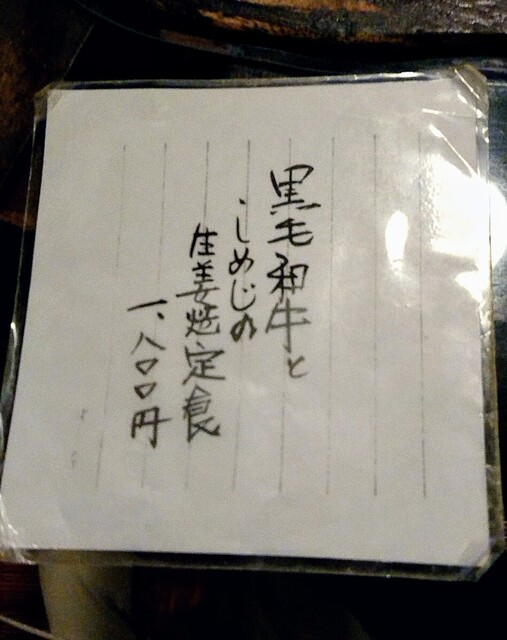 黒毛和牛と
しめじの
生姜焼定食
一、八〇〇円